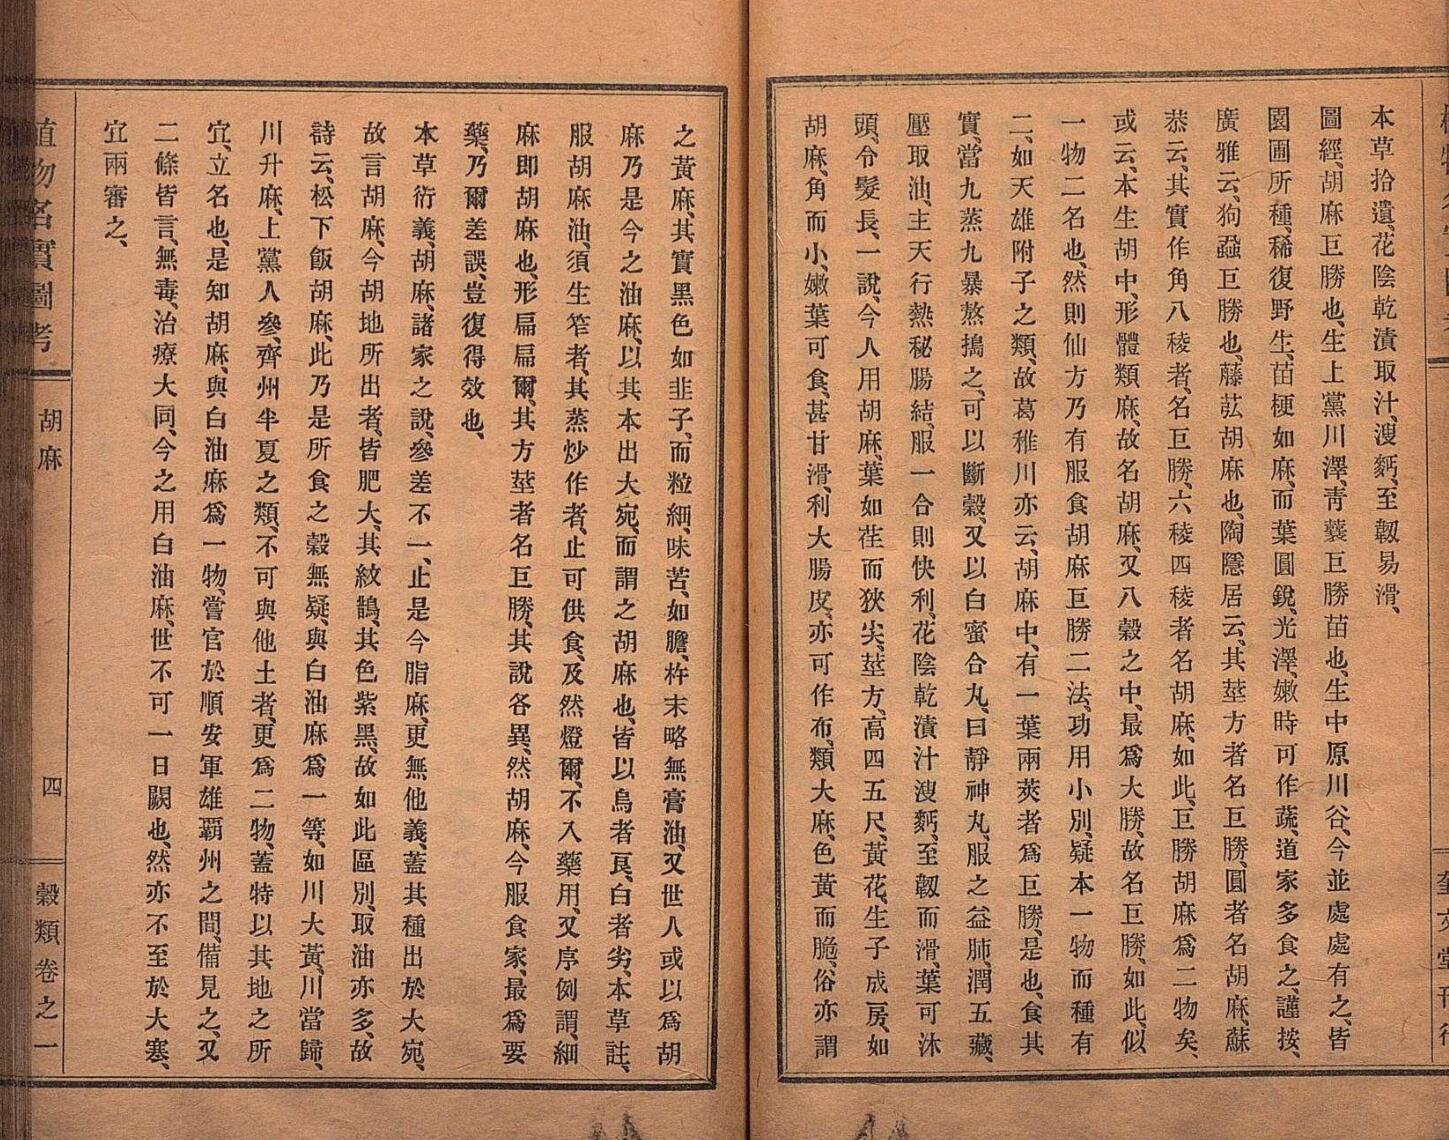 本草拾遺、花陰乾漬取汁、溲麪、至韌易滑、
圖經、胡麻巨勝也、生上黨川澤、靑蘘巨勝苗也、生中原川谷、今並處處有之、皆
園圃所種、稀復野生、苗梗如麻、而葉圓銳、光澤、嫩時可作蔬、道家多食之、謹按、
廣雅云、狗蝨巨勝也、藤苰胡麻也、陶隱居云、其莖方者名巨勝、圓者名胡麻、蘇
恭云、其實作角八稜者、名巨勝、六稜四稜者名胡麻、如此、巨勝胡麻爲二物矣、
或云、本生胡中、形體類麻、故名胡麻、又八穀之中、最爲大勝、故名巨勝、如此、似
一物二名也、然則仙方乃有服食胡麻巨勝二法、功用小別、疑本一物而種有
二、如天雄附子之類、故葛稚川亦云、胡麻中、有一葉兩莢者爲巨勝、是也、食其
實、當九蒸九暴熬搗之、可以斷穀、又以白蜜合丸、曰靜神丸、服之益肺、潤五藏、
壓取油、主天行熱秘腸結、服一合則快利、花陰乾漬汁溲麪、至韌而滑、葉可沐
頭、令髮長、一說、今人用胡麻、葉如荏而狹尖、莖方、高四五尺、黃花、生子成房、如
胡麻、角而小、嫩葉可食、甚甘滑、利大腸皮、亦可作布、類大麻、色黃而脆、俗亦謂
之黃麻、其實黑色如韭子、而粒細、味苦、如膽、杵末略無膏油、又世人或以爲胡
麻乃是今之油麻、以其本出大宛、而謂之胡麻也、皆以烏者良、白者劣、本草註、
服胡麻油、須生笮者、其蒸炒作者、止可供食、及然燈爾、不入藥用、又序例謂、細
麻即胡麻也、形扁扁爾、其方莖者名巨勝、其說各異、然胡麻、今服食家、最爲要
藥、乃爾差誤、豈復得效也、
本草衍義、胡麻、諸家之說、參差不一、止是今脂麻、更無他義、蓋其種出於大宛、
故言胡麻、今胡地所出者、皆肥大、其紋鵲、其色紫黑、故如此區別、取油亦多、故
詩云、松下飯胡麻、此乃是所食之穀無疑、與白油麻爲一等、如川大黃、川當歸、
川升麻、上黨人參、齊州半夏之類、不可與他土者、更爲二物、蓋特以其地之所
宜、立名也、是知胡麻、與白油麻爲一物、嘗官於順安軍雄霸州之間、備見之、又
二條皆言、無毒、治療大同、今之用白油麻、世不可一日闕也、然亦不至於大寒、
宜兩審之、
植物名實圖考
胡麻
四
穀類卷之一